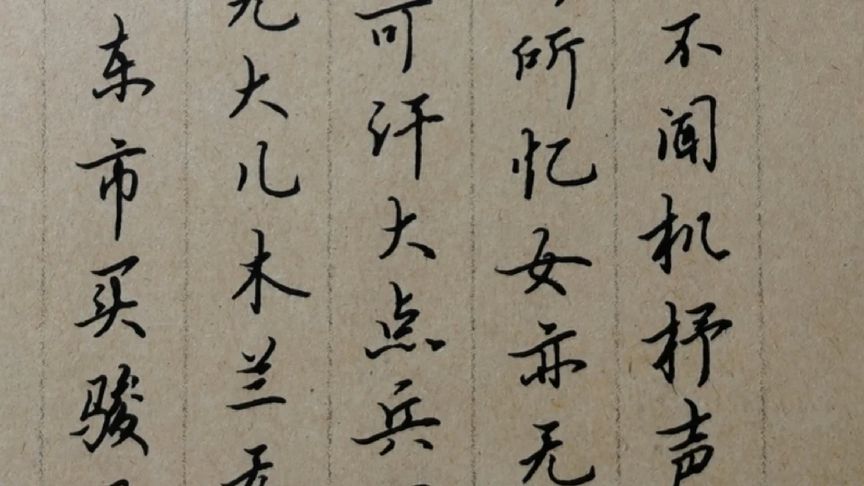 不闻机杼声
所忆女亦无
可汗大点兵
无大儿木兰无
东市买骏